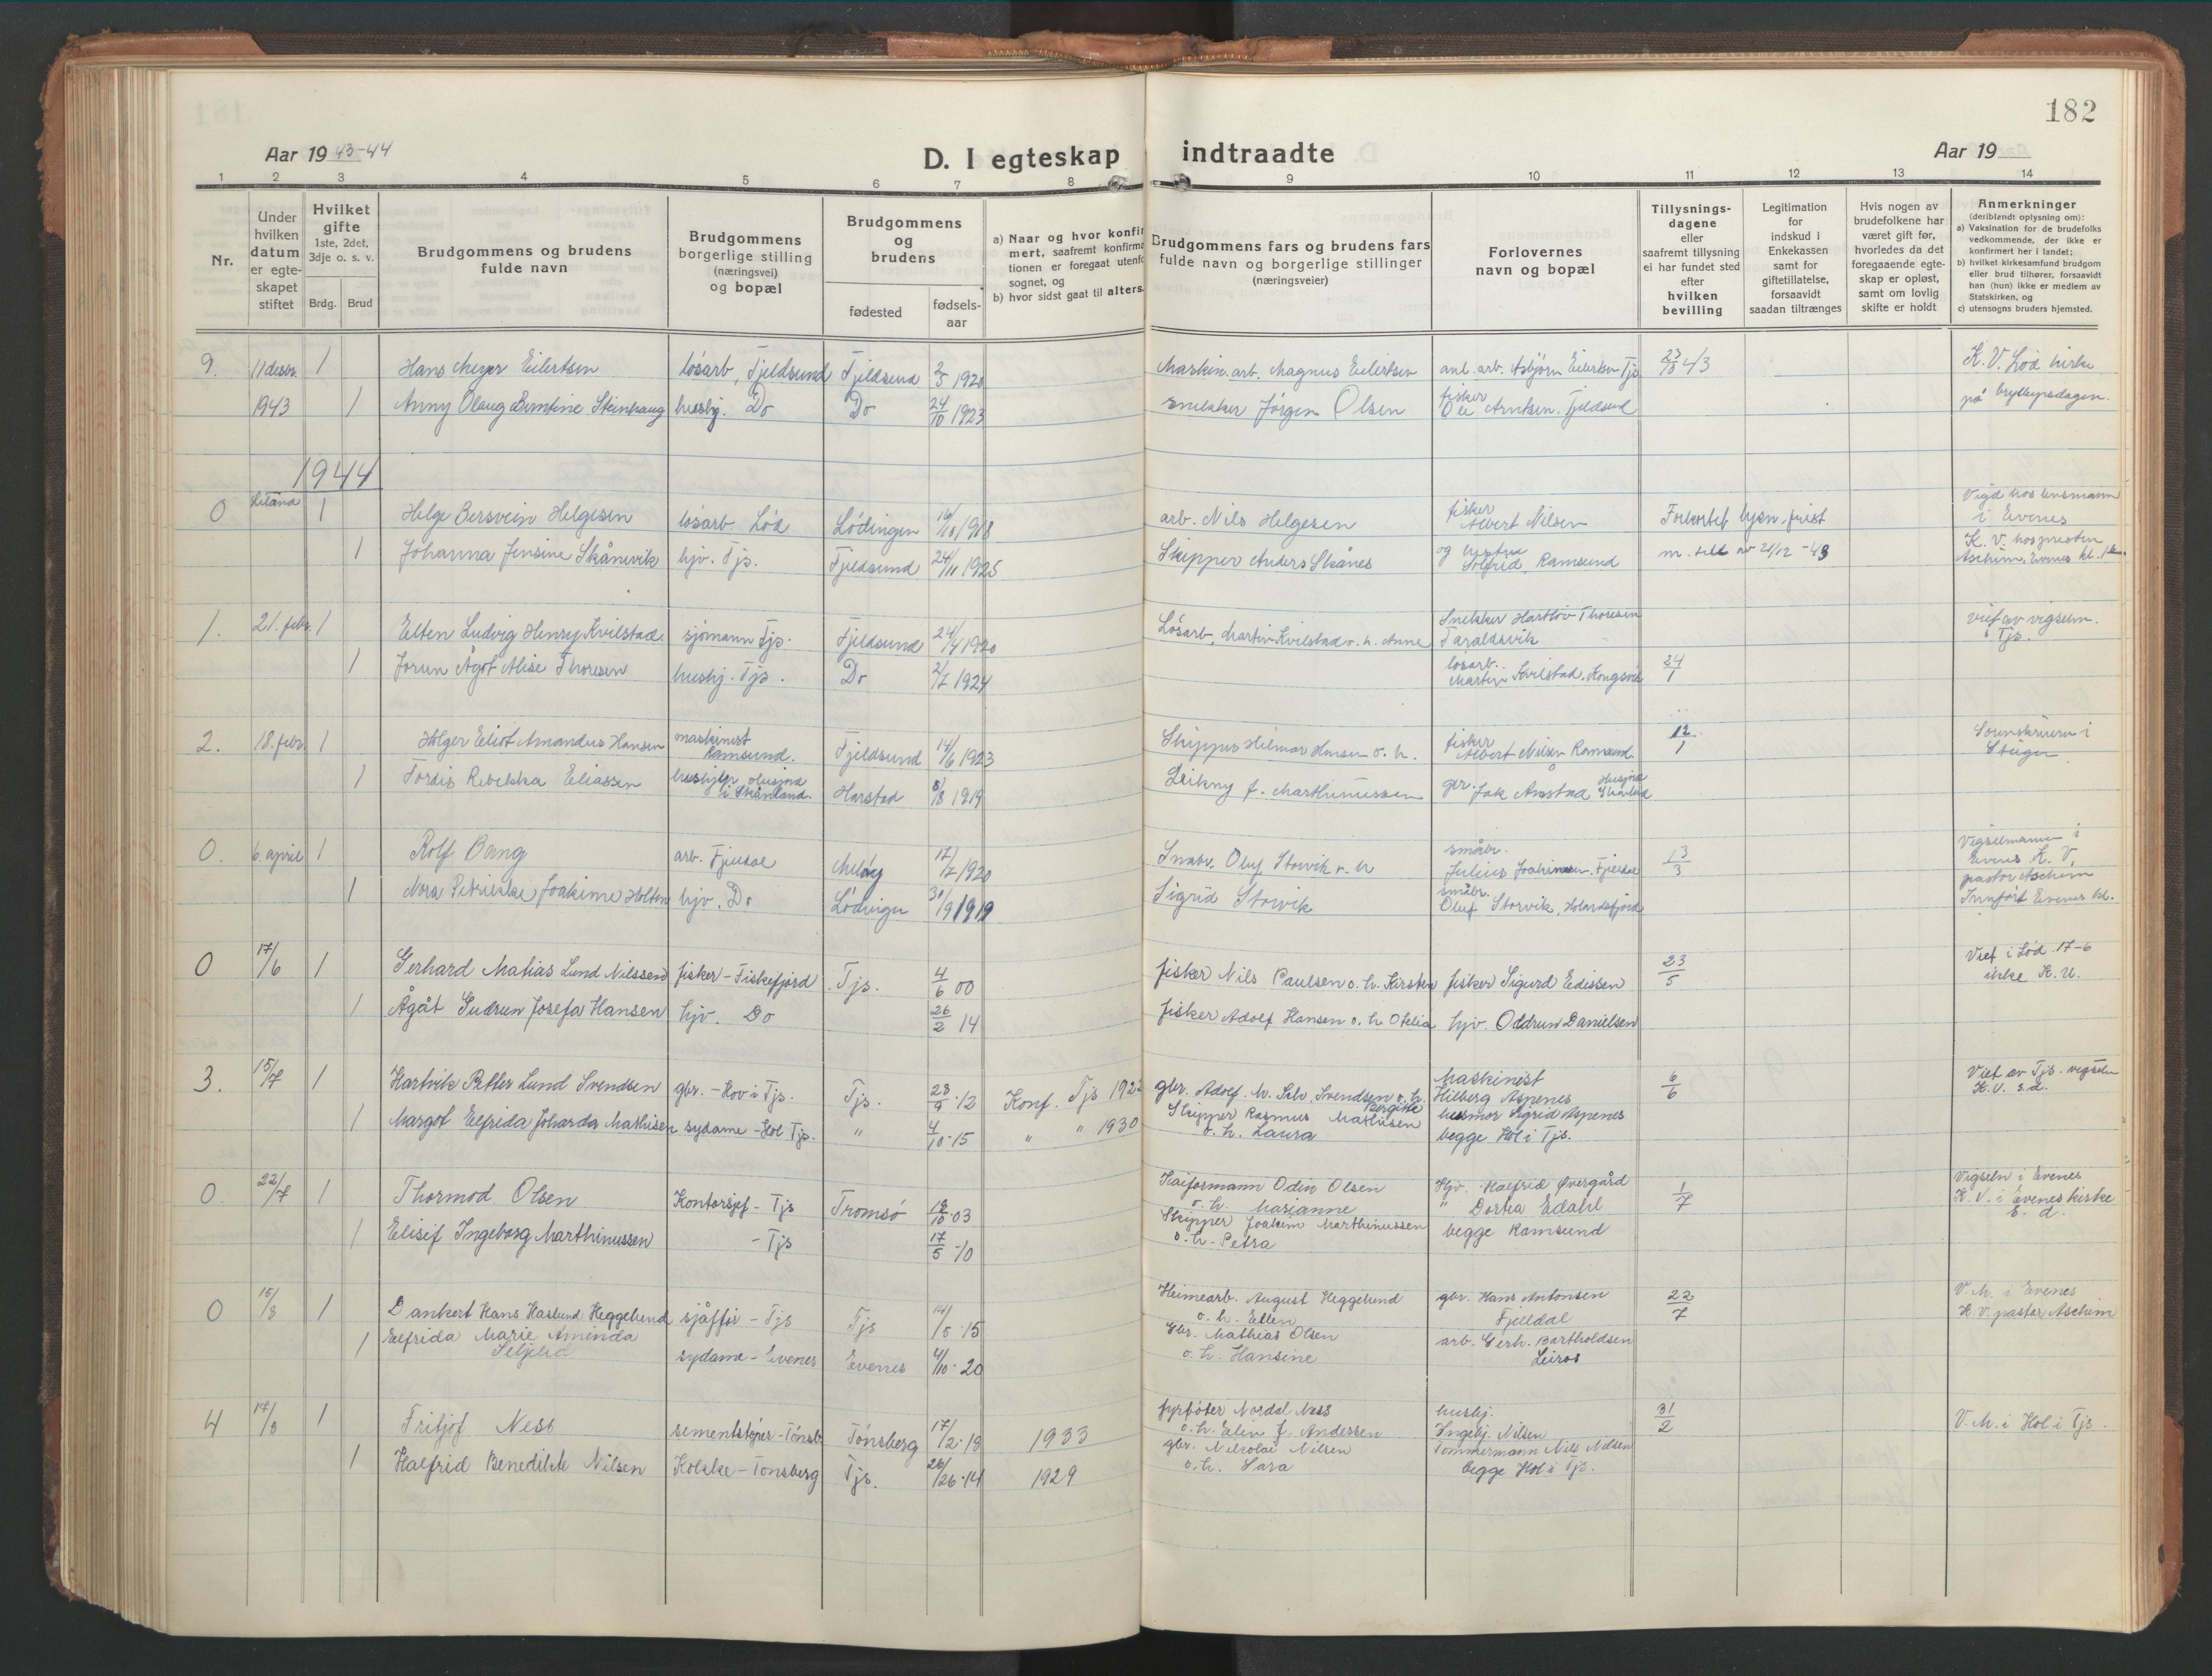 182
Aar 19 43-44
D. I egteskap indtraadte
Aar 19
1 2 3 4 5 6 7 8 9 10 11 12 13 14
Nr.
Under
hvilken
datum
er egte-
skapet
stiftet
Hvilket
gifte
1ste, 2det,
3dje o. s. v.
Brdg. Brud
Brudgommens og brudens
fulde navn
Brudgommens
borgerlige stilling
(næringsvei)
og bopæl
Brudgommens
og
brudens
fødested
fødsels-
aar
a) Naar og hvor konfir
mert, saafremt konfirma
tionen er foregaat utenfo
sognet, og
b) hvor sidst gaat til alters.
Brudgommens fars og brudens fars
fulde navn og borgerlige stillinger
(næringsveier)
Forlovernes
navn og bopæl
Tillysnings-
dagene
eller
saafremt tillysning
ei har fundet sted
efter
hvilken
bevilling
Legitimation
for
indskud i
Enkekassen
samt for
giftetillatelse,
forsaavidt
saadan tiltrænges
Hvis nogen av
brudefolkene har
været gift før,
hvorledes da det
foregaaende egte-
skap er opløst,
samt om lovlig
skifte er holdt
Anmerkninger
(deriblandt oplysning om):
a) Vaksination for de brudefolks
vedkommende, der ikke er
konfirmert her i landet;
b) hvilket kirkesamfund brudgom
eller brud tilhører, forsaavidt
han (hun) ikke er medlem av
Statskirken, og
c) utensogns bruders hjemsted.
9. 11 desbr. 1 Hans Meyer Eilertsen løsarb, Tjeldsund Tjeldsund 2/5 1920 Maskin.arb. Magnus Eilertsen anl. arb. Asbjørn Eilertsen Tjs 23/10 43 K. V. Lød kirke
1943 1 Anny Olaug Berntine Steinhaug huslig. Do Do 24/10 1923 snekker Jørgen Olsen fisker Ole Arntsen. Tjeldsund på bryllupsdagen.
1944
0 1 Helge Bersvein Helgesen løsarb. Lød Lødingen 16/10 1918 arb. Nils Helgesen fisker Albert Nilsen Forkortet lysn. frist Vigd hos lensmann i Evenes
1 Johanna Jensine Skånevik hjv. Tjs. Tjeldsund 24/11 1925 Skipper Anders Skånes og hustru Solfrid, Ramsund m. till av 21/12 -43 K. V. hos presten Aschim, Evenes kl.
1. 21. febr. 1 Elten Ludvig Henry Kvilstad sjømann Tjs. Tjeldsund 24/4 1920 Løsarb, Martin Kvilstad o. h. Anne Snekker Hartløv Thoresen Taraldsvik viet av vigselm. i Tjs.
1 Jorun Ågot Alise Thoresen hushj. Tjs. Do 2/7 1924 løsarb. Martin Kvilstad, Kongsvik 24/1
2. 18. febr. 1 Holger Eliot Amandus Hansen maskinist Ramsund. Tjeldsund 14/6 1923 Skipper Hilmar Hansen o. h. fisker Albert Nilsen Ramsund. 12/1 Sorenskriveren i Steigen
1 Tordis Rebekka Eliassen hushjelp i Skånland. Harstad 8/8 1919 Leikny f. Marthinussen gbr. Jak Aastad
0. 6. april 1 Rolf Bang arb. Fjeldal Meløy 17/7 1920 Småbr. Oluf Storvik o. h småbr. Julius Joakimsen. Fjeldal 13/3 Vigselmann i Evenes K. V,
1 Nora Petrikke Joakime Holten hjv. Do Lødingen 30/9 1919 Sigrid Storvik småbr. Oluf Storvik, pastor Aschim Innført Evenes kl.
0 17/6 1 Gerhard Mathias Lund Nilssen fisker - Fiskefjord Tjs. 4/6 00 fisker Nils Paulsen o. h. Kirsten fisker Sigurd Edissen 23/5 Viet i Lød 17-6 kirke K. V.
1 Ågåt Gudrun Josefa Hansen hjv. Do 26/2 14 fisker Adolf Hansen o. h. Otelia hjv. Oddrun Danielsen
3. 15/7 1 Hartvik Petter Lund Svendsen gbr. - Hov i Tjs. Tjs. 28/9 - 12 Konf. Tjs 1922 gbr. Adolf. M. Salv. Svendsen o. h. Bergitte Maskinist Hilberg Aspenes 6/6 Viet av Tjs. vigselm K. V. s. d.
1 Margot Elfrida Joharda Mathisen sydame - Hol Tjs. " 4/10 - 15 " " 1930 Skipper Rasmus Mathisen o. h. Laura husmor Sigrid Aspenes begge Hol i Tjs.
0. 22/7 1 Thormod Olsen Kontorsjef - Tjs Tromsø 18/10 - 03 Kaiformann Odin Olsen o. h. Marianne Hjv. Halfrid Øvergård " Dorthea Edahl 1/7 Vigseln i Evenes K. V. i Evenes kirke s. d.
1 Elisif Ingeborg Marthinussen - Tjs 17/5 - 10 Skipper Joakim Marthinussen o. h. Petra begge Ramsund
0 15/8 1 Dankert Hans Haslund Heggelund sjåffør - Tjs Tjs 14/5 - 15 Heimearb. August Heggelund o. h. Ellen gbr. Hans Antonsen Fjeldal 22/7 V. M. i Evenes K. V. pastor Aschim
1 Elfrida Marie Aminda Seljelid sydame - Evenes Evenes 4/10 - 20 Gbr. Mathias Olsen o. h. Hansine arb. Gerh. Bartholdsen Leiros
4 17/8 1 Fritjof Ness sementstøper - Tønsb. Tønsberg 17/2 - 18 1933 fyrbøter Nordal Ness o. h. Elin f. Andersen hushj. Ingebj. Nilsen 31/2 V. M. i Hol i Tjs.
1 Halfrid Benedikte Nilsen Kokke - Tønsberg Tjs. 26/26 - 14 1929 gbr. Nikolai Nilsen o. h. Sara Tømmermann Nils Nilsen begge Hol i Tjs.